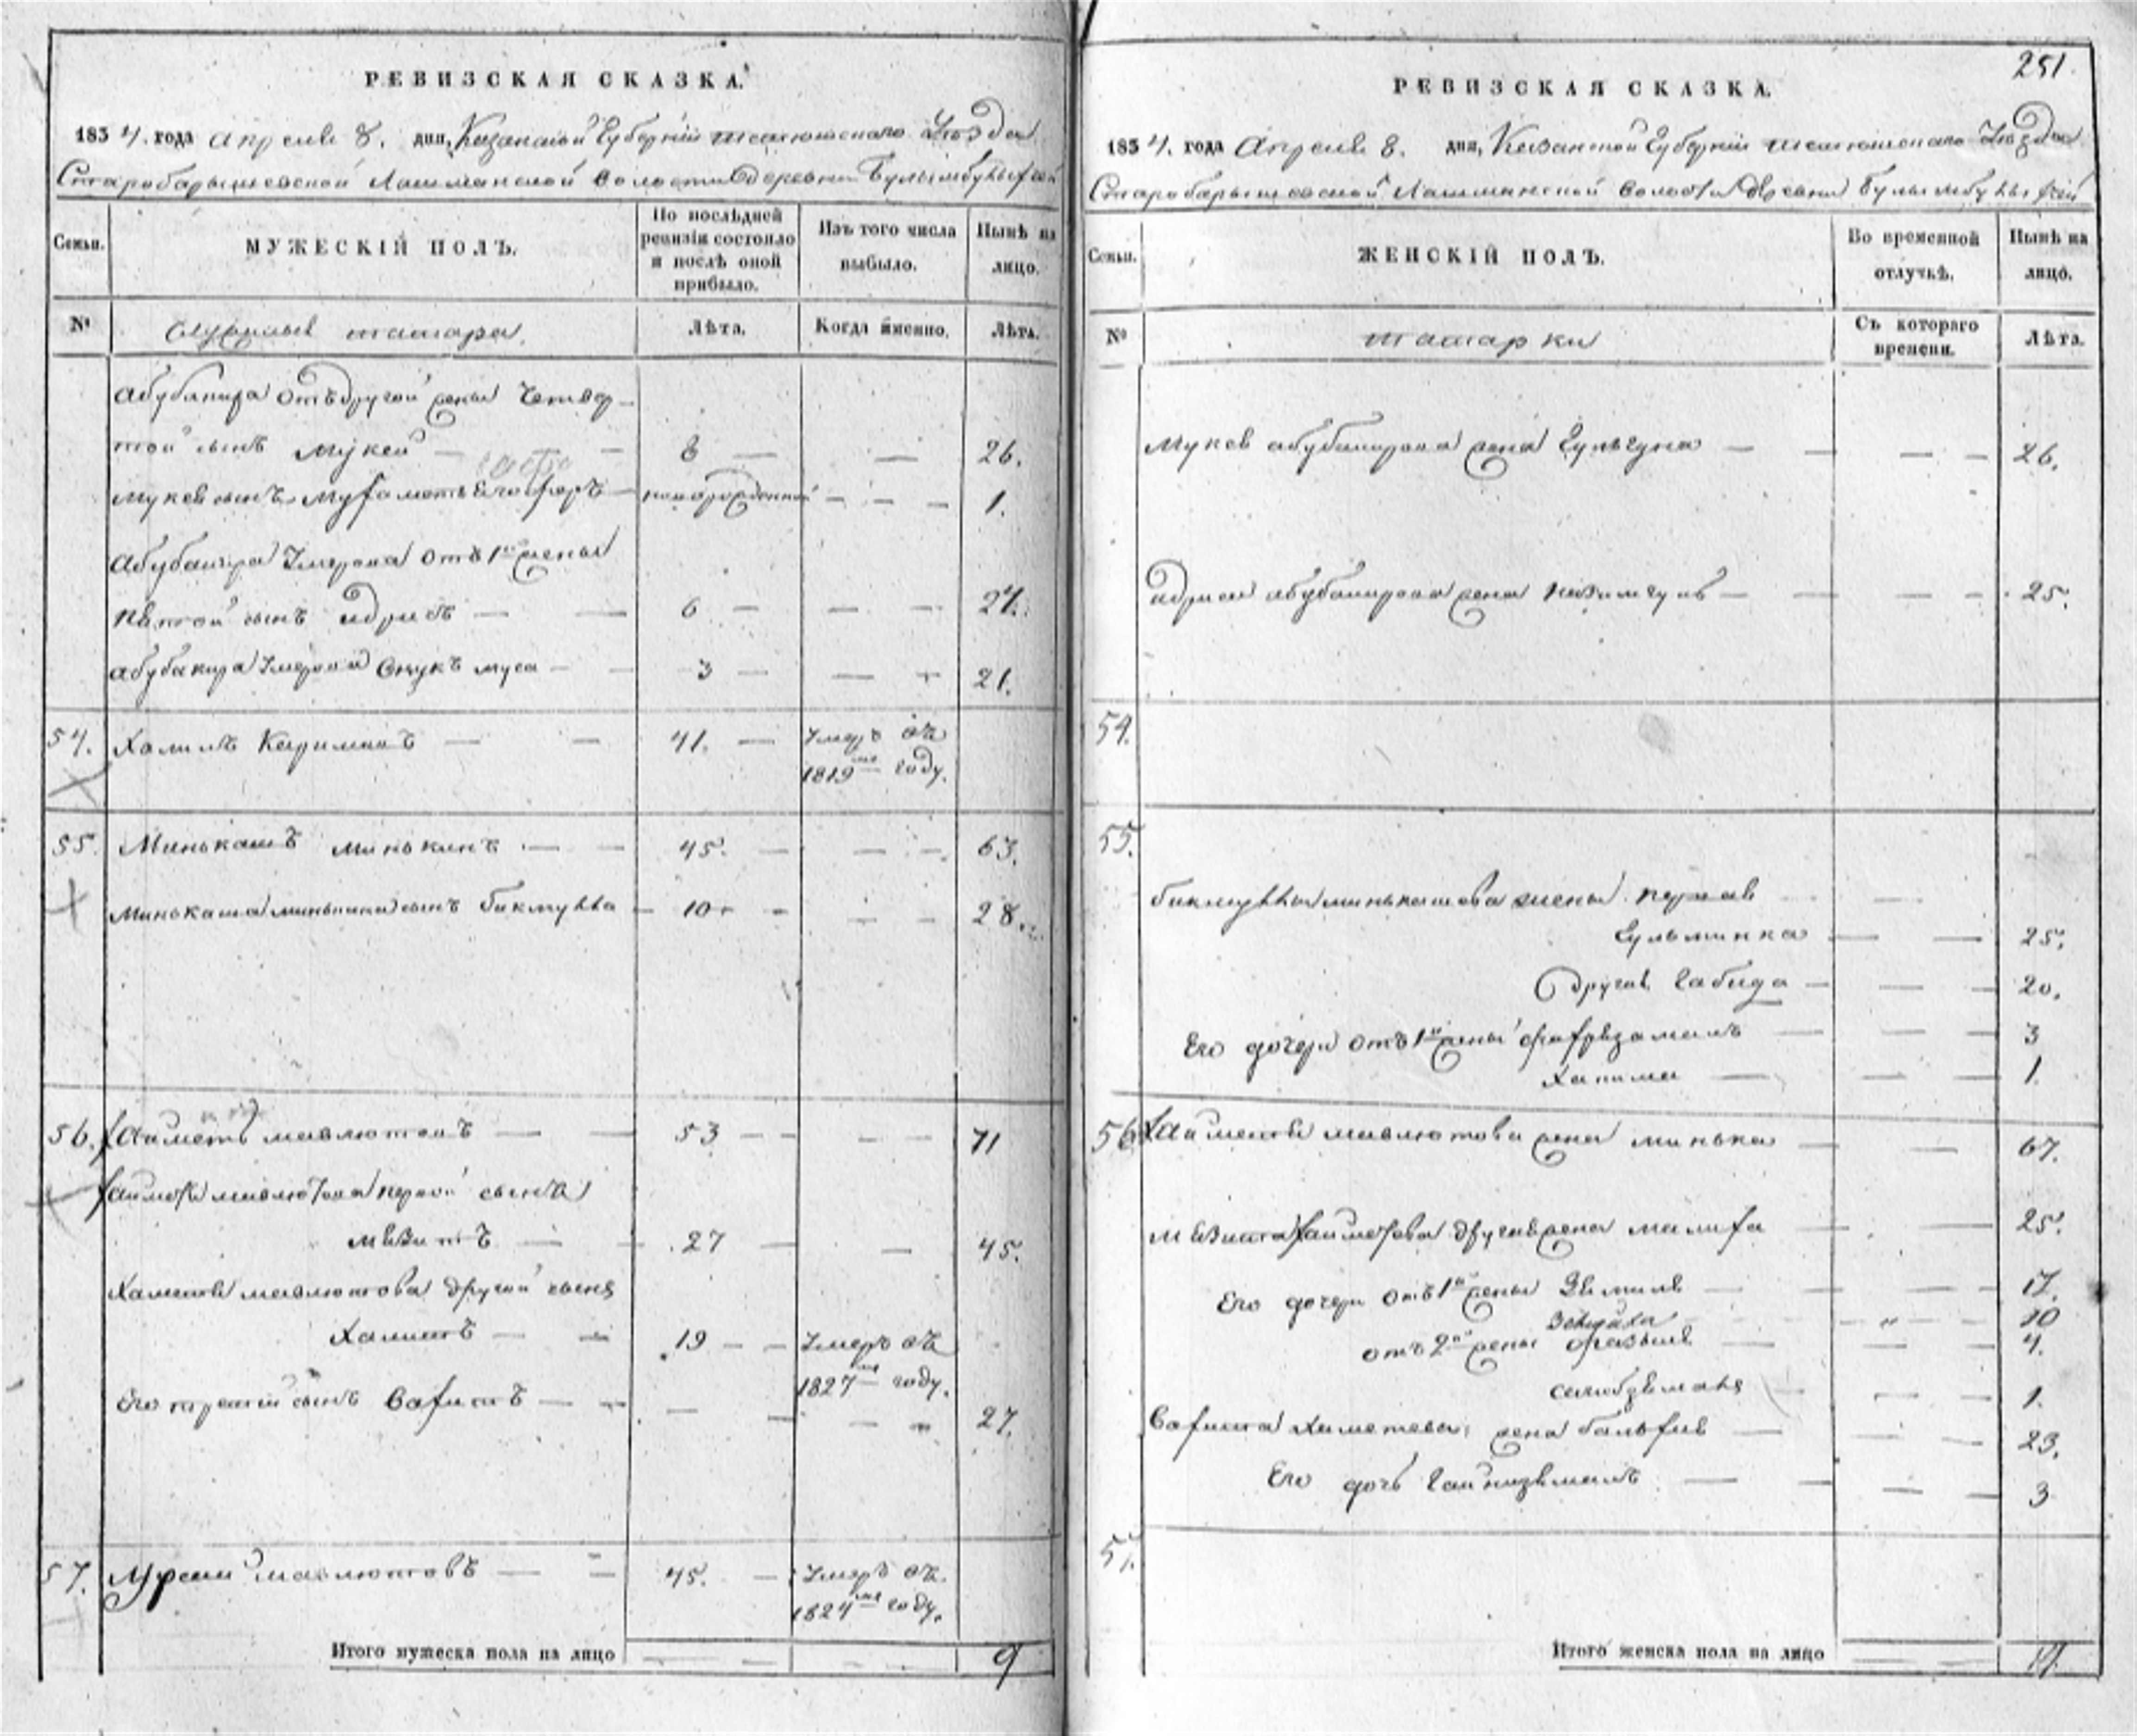 РЕВИЗСКАЯ СКАЗКА.
1834. года Апреля 8. дня, Казанской Губернии Уезда
Старобарышевской Лашманской волости деревни
Семьи.
МУЖЕСКІЙ ПОЛЪ.
По послѣдней ревизіи состояло и послѣ оной прибыло.
Изъ того числа выбыло.
Нынѣ на лицо.
№
Служилые татара.
Лѣта.
Когда именно.
Лѣта.
Абубакира отъ другой жены четвер-
той сынъ Мукей — 8 — — 26.
Мукея сынъ Мухаметь — новорожденной — — — 1.
Абубакира Умерова отъ 1й жены
пятой сынъ Идрисъ — 6 — — — 24.
Абубакира Умерова внукъ Муса — 3 — — — 21.
54. Халитъ Каримовъ — — 41. — Умеръ въ
1819мъ году.
55. Минькашъ Минькинъ — — 45. — — — 63.
Минькаша Минькина сынъ Бикмулла — 10 — — — 28.
56. Хаиметь Мавлютовъ — — 53 — — — — 71
Хаиметя Мавлютова первой сынъ
Мязитъ — — 27 — — 45.
Хаметя Мавлютова другой сынъ
Халитъ — — 19 — — Умеръ въ
1827мъ году.
Его третій сынъ Вафитъ — — — — — — 27.
57. Мавлютовъ — — 45. — Умеръ въ
1824мъ году.
Итого мужеска пола на лицо 9
251.
РЕВИЗСКАЯ СКАЗКА.
1834. года Апреля 8. дня, Казанской Губернии Уезда
Старобарышевской Лашманской волости деревни
Семьи.
ЖЕНСКІЙ ПОЛЪ.
Во временной отлучкѣ.
Нынѣ на лицо.
№
татарки
Съ котораго времени.
Лѣта.
Мукея Абубакирова жена Гульгуна — — — — 26.
Идриса Абубакирова жена — — — — 25.
54.
55.
Бикмуллы Минькашева жены первая —
Гульминка — — 25.
Другая Габида — — — 20.
Его дочери отъ 1й жены — — — 3
Ханима — — — 1.
56. Хаиметя Мавлютова жена Минька — — — 67.
Мязита Хаиметова другая жена Малифа — — 25.
Его дочери отъ 1й жены — — — 17.
10
отъ 2й жены — — — 4.
— — 1.
Вафита Химетева жена — — — 23.
Его дочь — — — — 3
57.
Итого женска пола на лицо